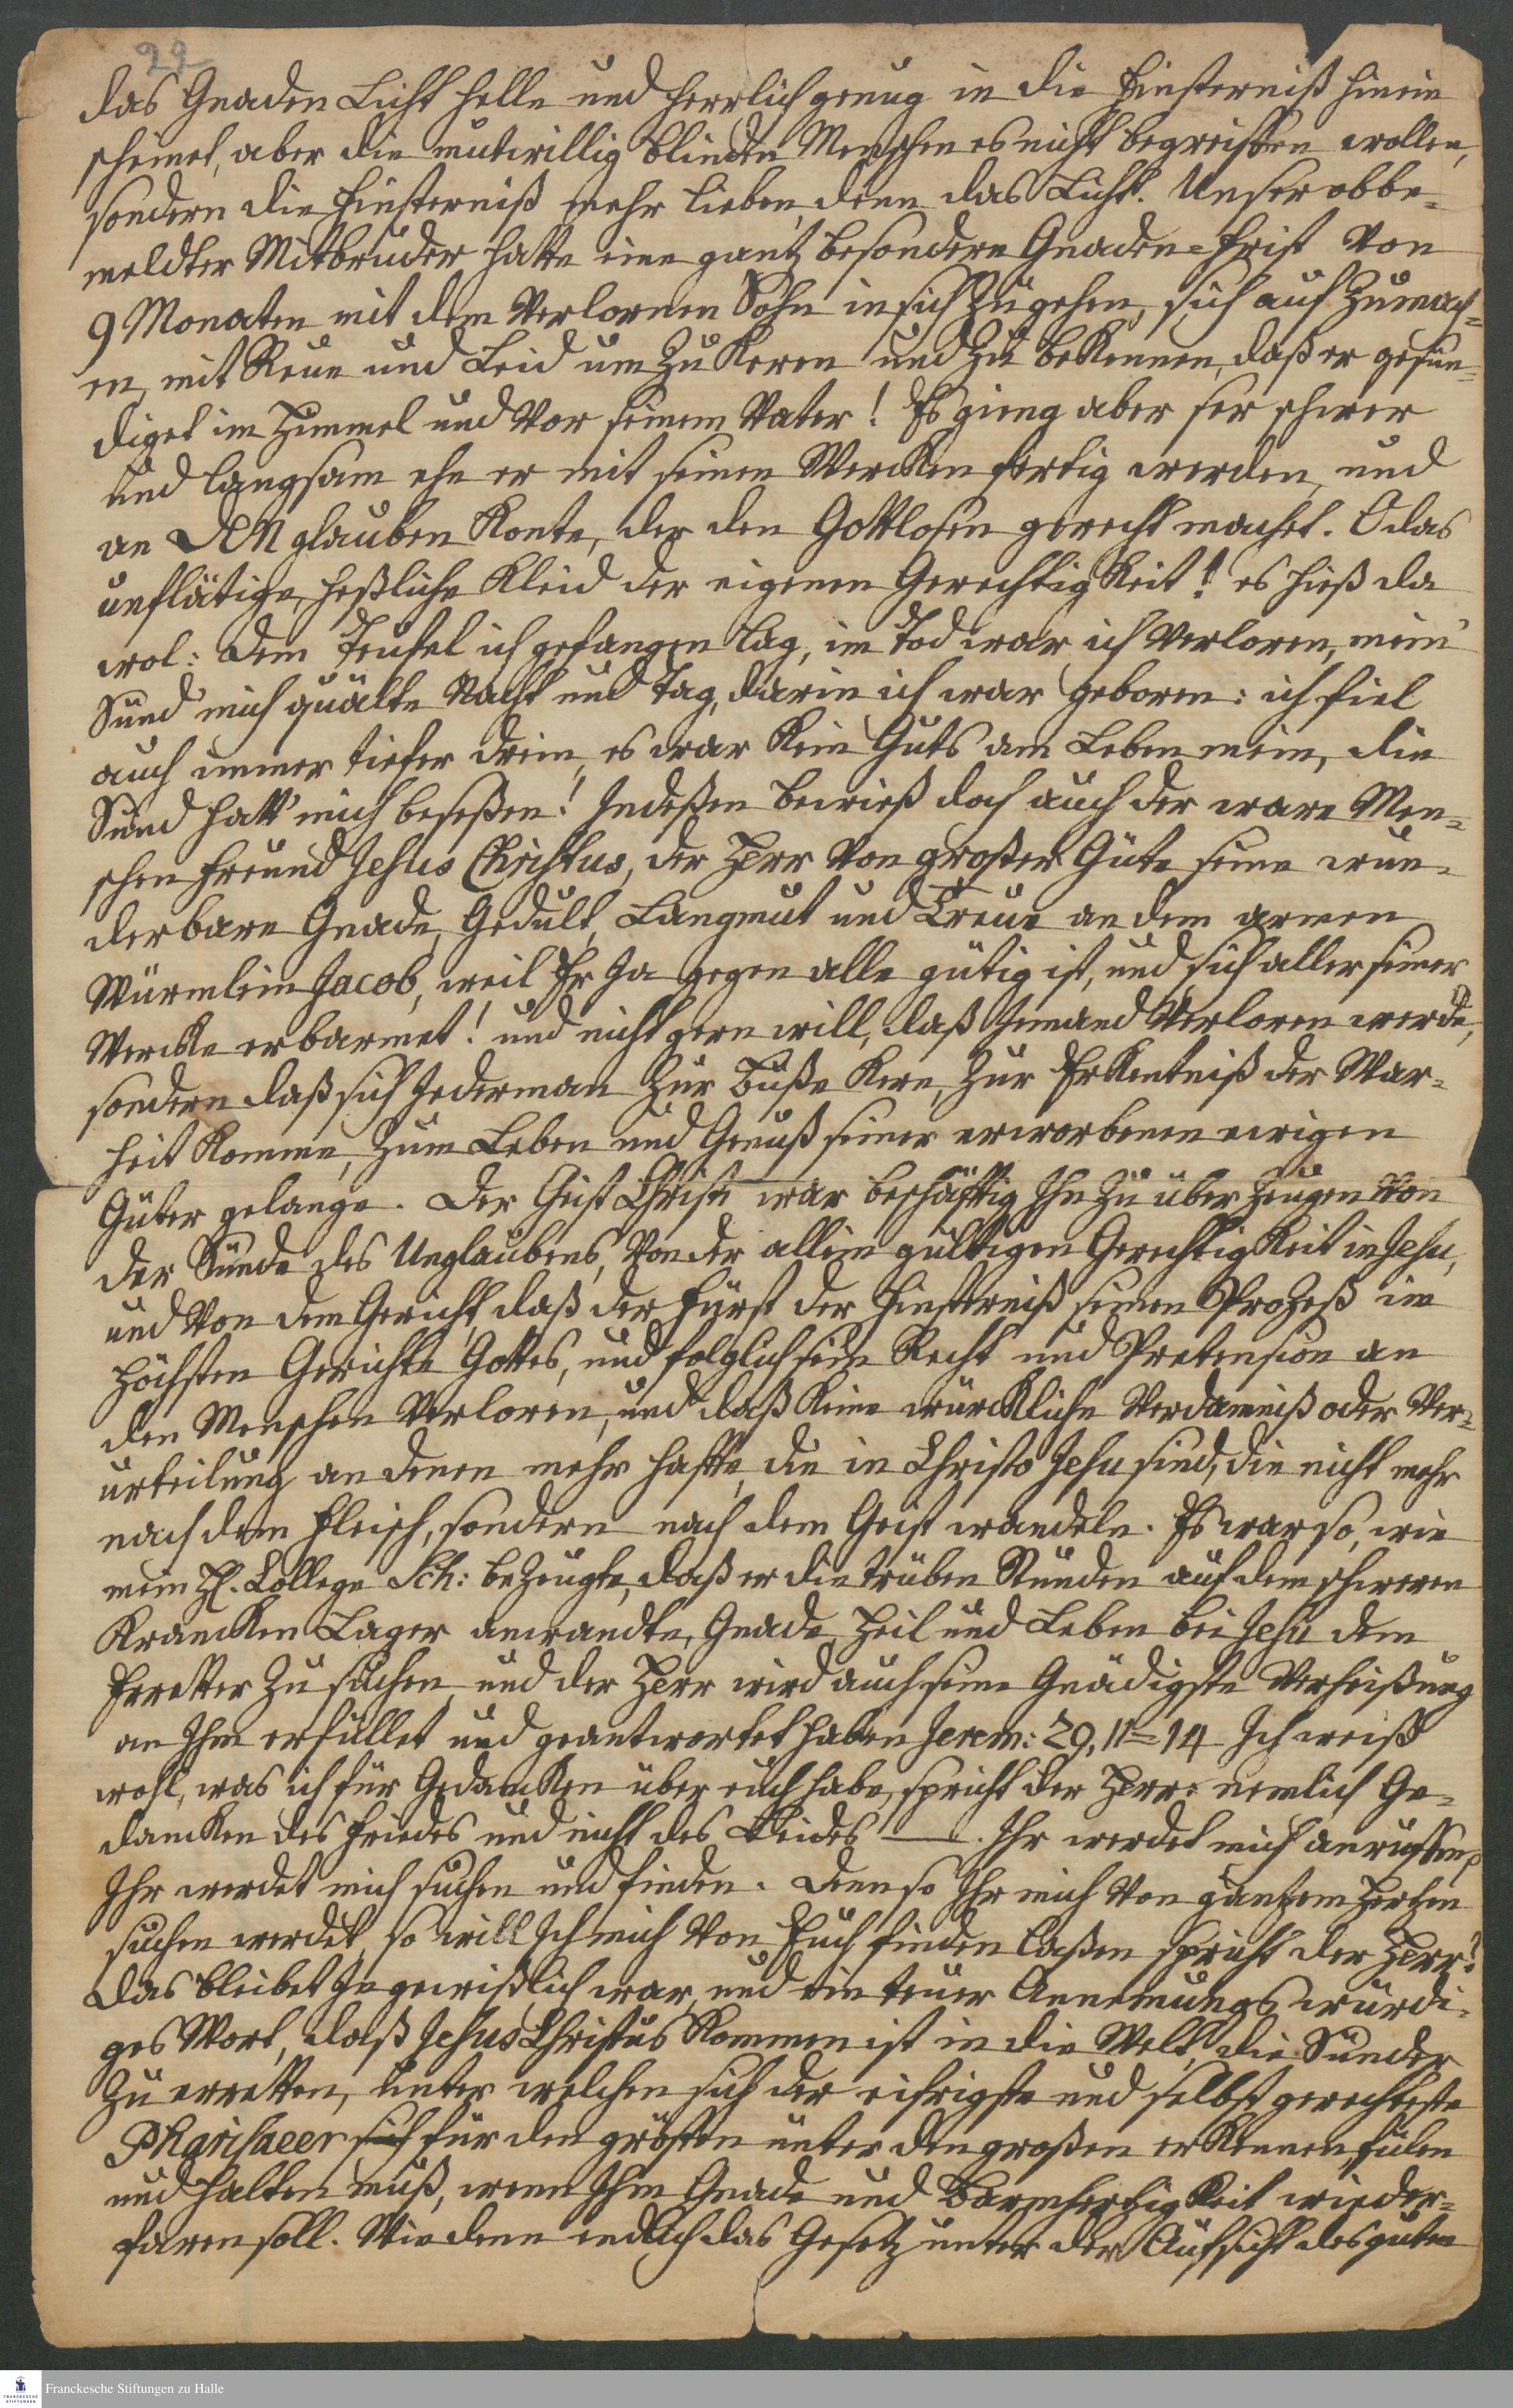 22
das Gnaden Licht helle und herrlich genug in die Finsterniß hinein
scheinet, aber die mutwillig blinden Menschen es nicht begreiffen wollen,
sondern die Finsterniß mehr lieben, denn das Licht. Unser obbe-
meldter Mitbruder hatte eine gantz besondere Gnaden-Frist von
9 Monaten mit dem verlornen Sohn in sich zu gehen, sich auf zumach-
en, mit Reue und Leid um zu keren und zu bekennen, daß er gesün-
diget im Himmel und vor seinem Vater! Es gieng aber ser schwer
und langsam ehe er mit seinen Wercken fertig werden, und
an DEN glauben konte, der den Gottlosen gerecht machet. O das
unflätige, heßliche Kleid der eigenen Gerechtigkeit! es hieß da
wol: Dem Teufel ich gefangen lag, im Tod war ich verloren, mein'
Sünd' mich quälte Nacht und Tag, darin ich war geboren: ich fiel
auch immer tiefer drein, es war kein Guts am Leben mein, die
Sünd hatt' mich beseßen! Indeßen bewieß doch auch der ware Men-
schen Freund Jesus Christus, der Herr von großer Güte seine wun-
derbare Gnade, Gedult, Langmut und Treue an dem armen
Würmlein Jacob, weil Er Ja gegen alle gütig ist, und sich aller seiner
Wercke erbarmet! und nicht gern will, daß Jemand verloren werde,
sondern daß sich Jederman zur Buße kere, zur Erkentniß der War-
heit komme, zum Leben und Genuß seiner erworbenen ewigen
Güter gelange. Der Geist Christi war beschäftig Ihn zu über zeugen von
der Sünde des Unglaubens, von der allein gültigen Gerechtigkeit in Jesu,
und von dem Gericht, daß der Fürst der Finsterniß seinen Prozeß im
höchsten Gerichte Gottes, und folglich sein Recht und Pretension an
den Menschen verloren, und daß keine würckliche Verdamniß oder Ver-
urteilung an denen mehr hafte, die in Christo Jesu sind, die nicht mehr
nach dem Fleisch, sondern nach dem Geist wandeln. Es war so, wie
mein H. College Sch: bezeugte, daß er die trüben Stunden auf dem schweren
Krancken Lager anwandte, Gnade, Heil und Leben bei Jesu dem
Erretter zu suchen, und der Herr wird auch seine Gnädigste Verheißung
an Ihm erfüllet und geantwortet haben Jerem: 29, 11=14 Ich weiß
wohl, was ich für Gedancken über euch habe, spricht der Herr: nemlich Ge-
dancken des Friedes und nicht des Leides —. Ihr werdet mich anruffen,
Ihr werdet mich suchen und finden. Denn so Ihr mich von gantzem Hertzen
suchen werdet, so will Ich mich von Euch finden laßen spricht der Herr!
Das bleibet Je gewißlich war, und ein teuer Annemungs würdi-
ges Wort, daß Jesus Christus kommen ist in die Welt die Sünder
zu erretten, unter welchen sich der eifrigste und selbst gerechteste
Pharisaeer sich für den grösten unter den großen erkennen, fülen
und halten muß, wenn Ihm Gnade und Barmhertzigkeit wieder-
faren soll. Wie denn endlich das Gesetz unter der Aufsicht des guten